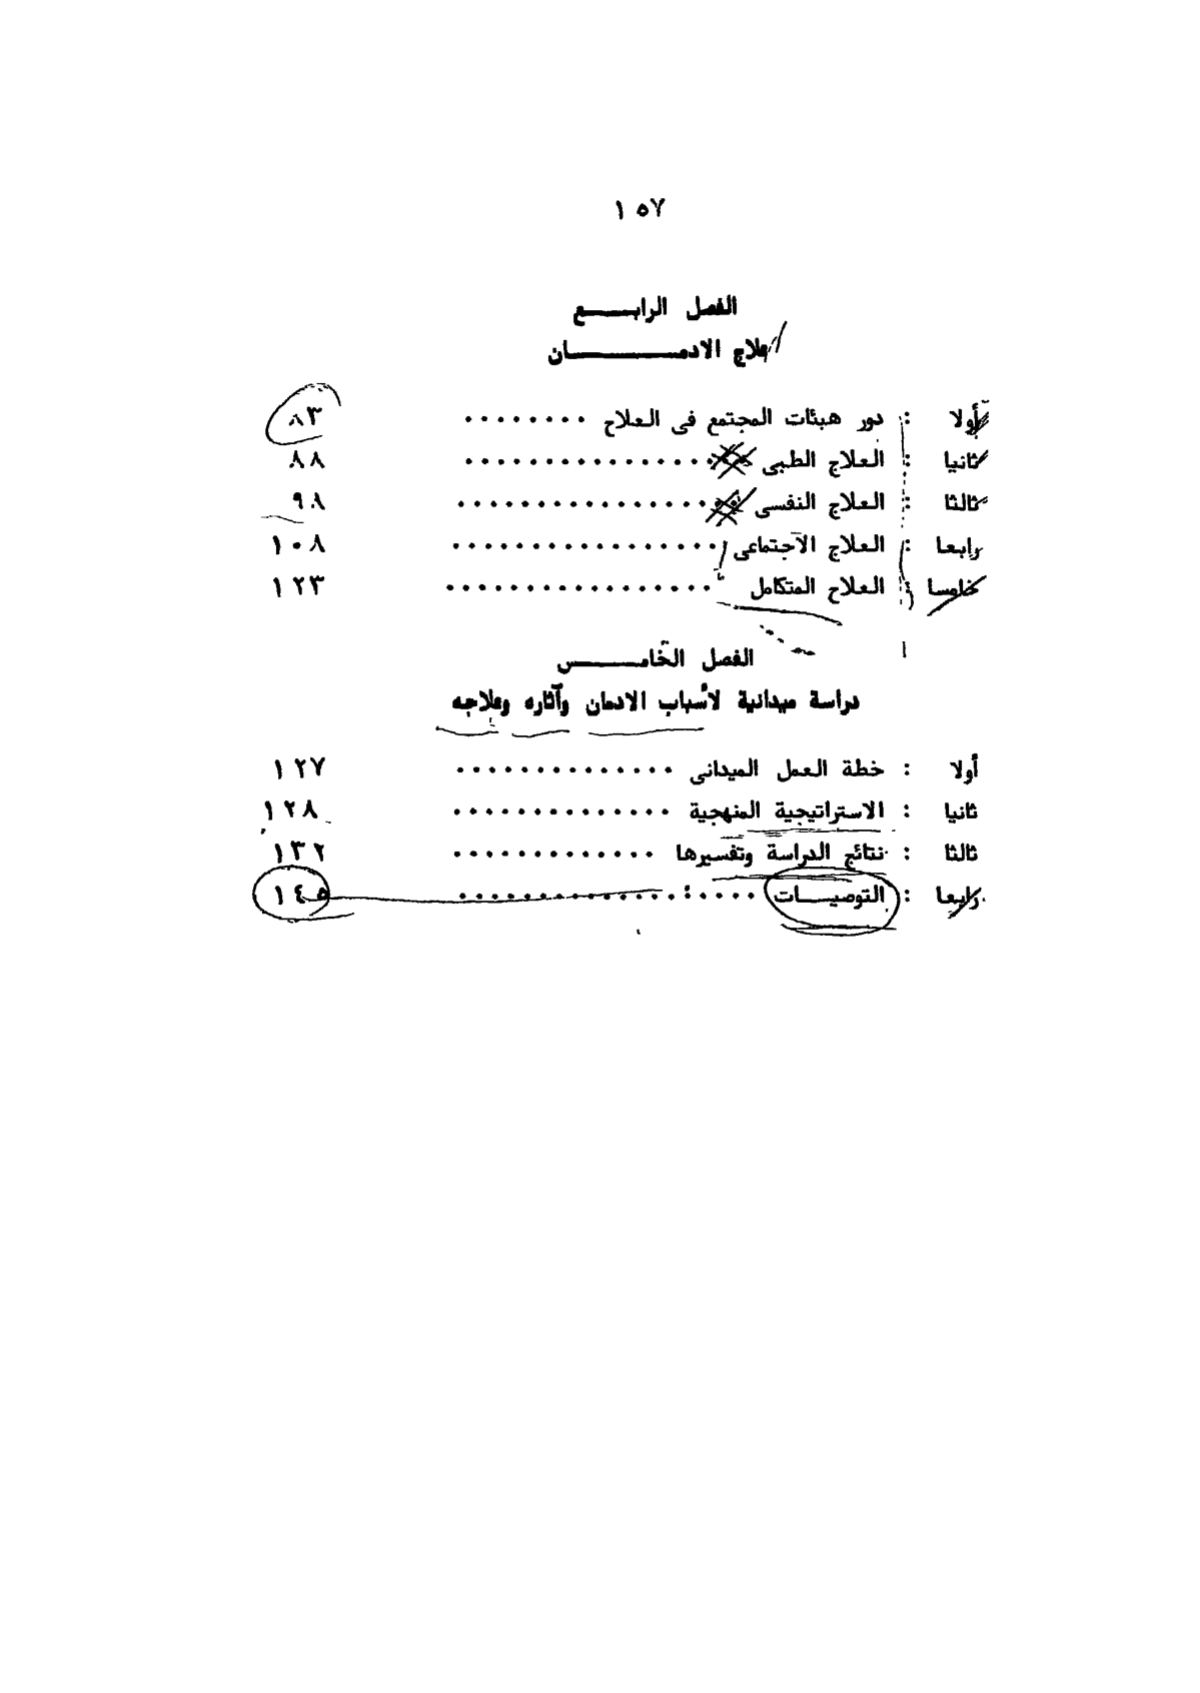 ١٥٧
الفصل الرابـــــع
علاج الادمـــــــــــان
أولا : دور هيئات المجتمع فى العلاج ........ ٨٣
ثانيا : العلاج الطبى ................ ٨٨
ثالثا : العلاج النفسى ................ ٩٨
رابعا : العلاج الاجتماعى ................. ١٠٨
خامسا : العلاج المتكامل ................. ١٢٣
الفصل الخامـــــــس
دراسة ميدانية لأسباب الادمان وآثاره وعلاجه
أولا : خطة العمل الميدانى .............. ١٢٧
ثانيا : الاستراتيجية المنهجية .............. ١٢٨
ثالثا : نتائج الدراسة وتفسيرها ............. ١٣٢
رابعا : التوصيـــات ................... ١٤٥